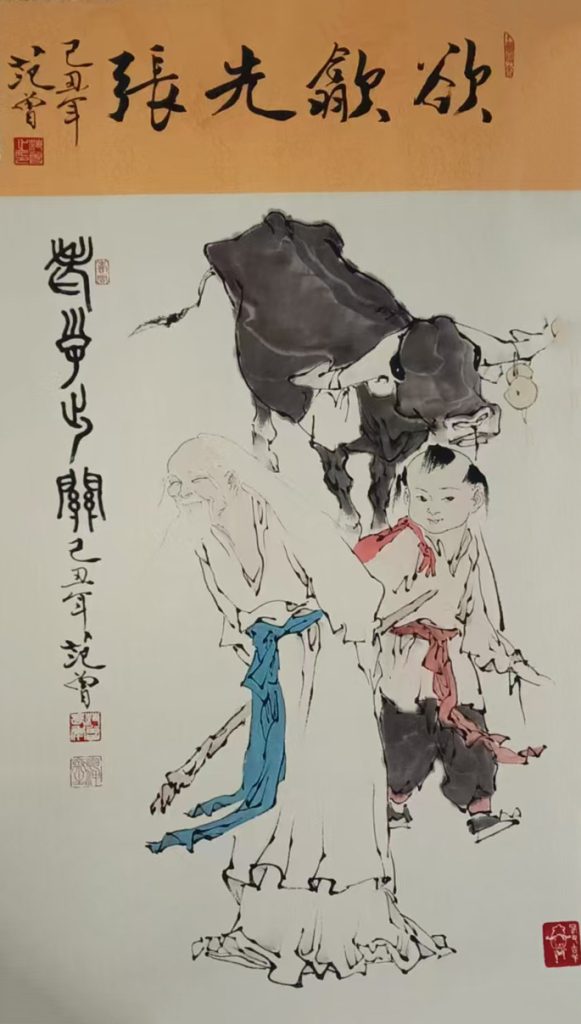 欲歙先張
己丑年
范曾
老子出關 己丑年 范曾